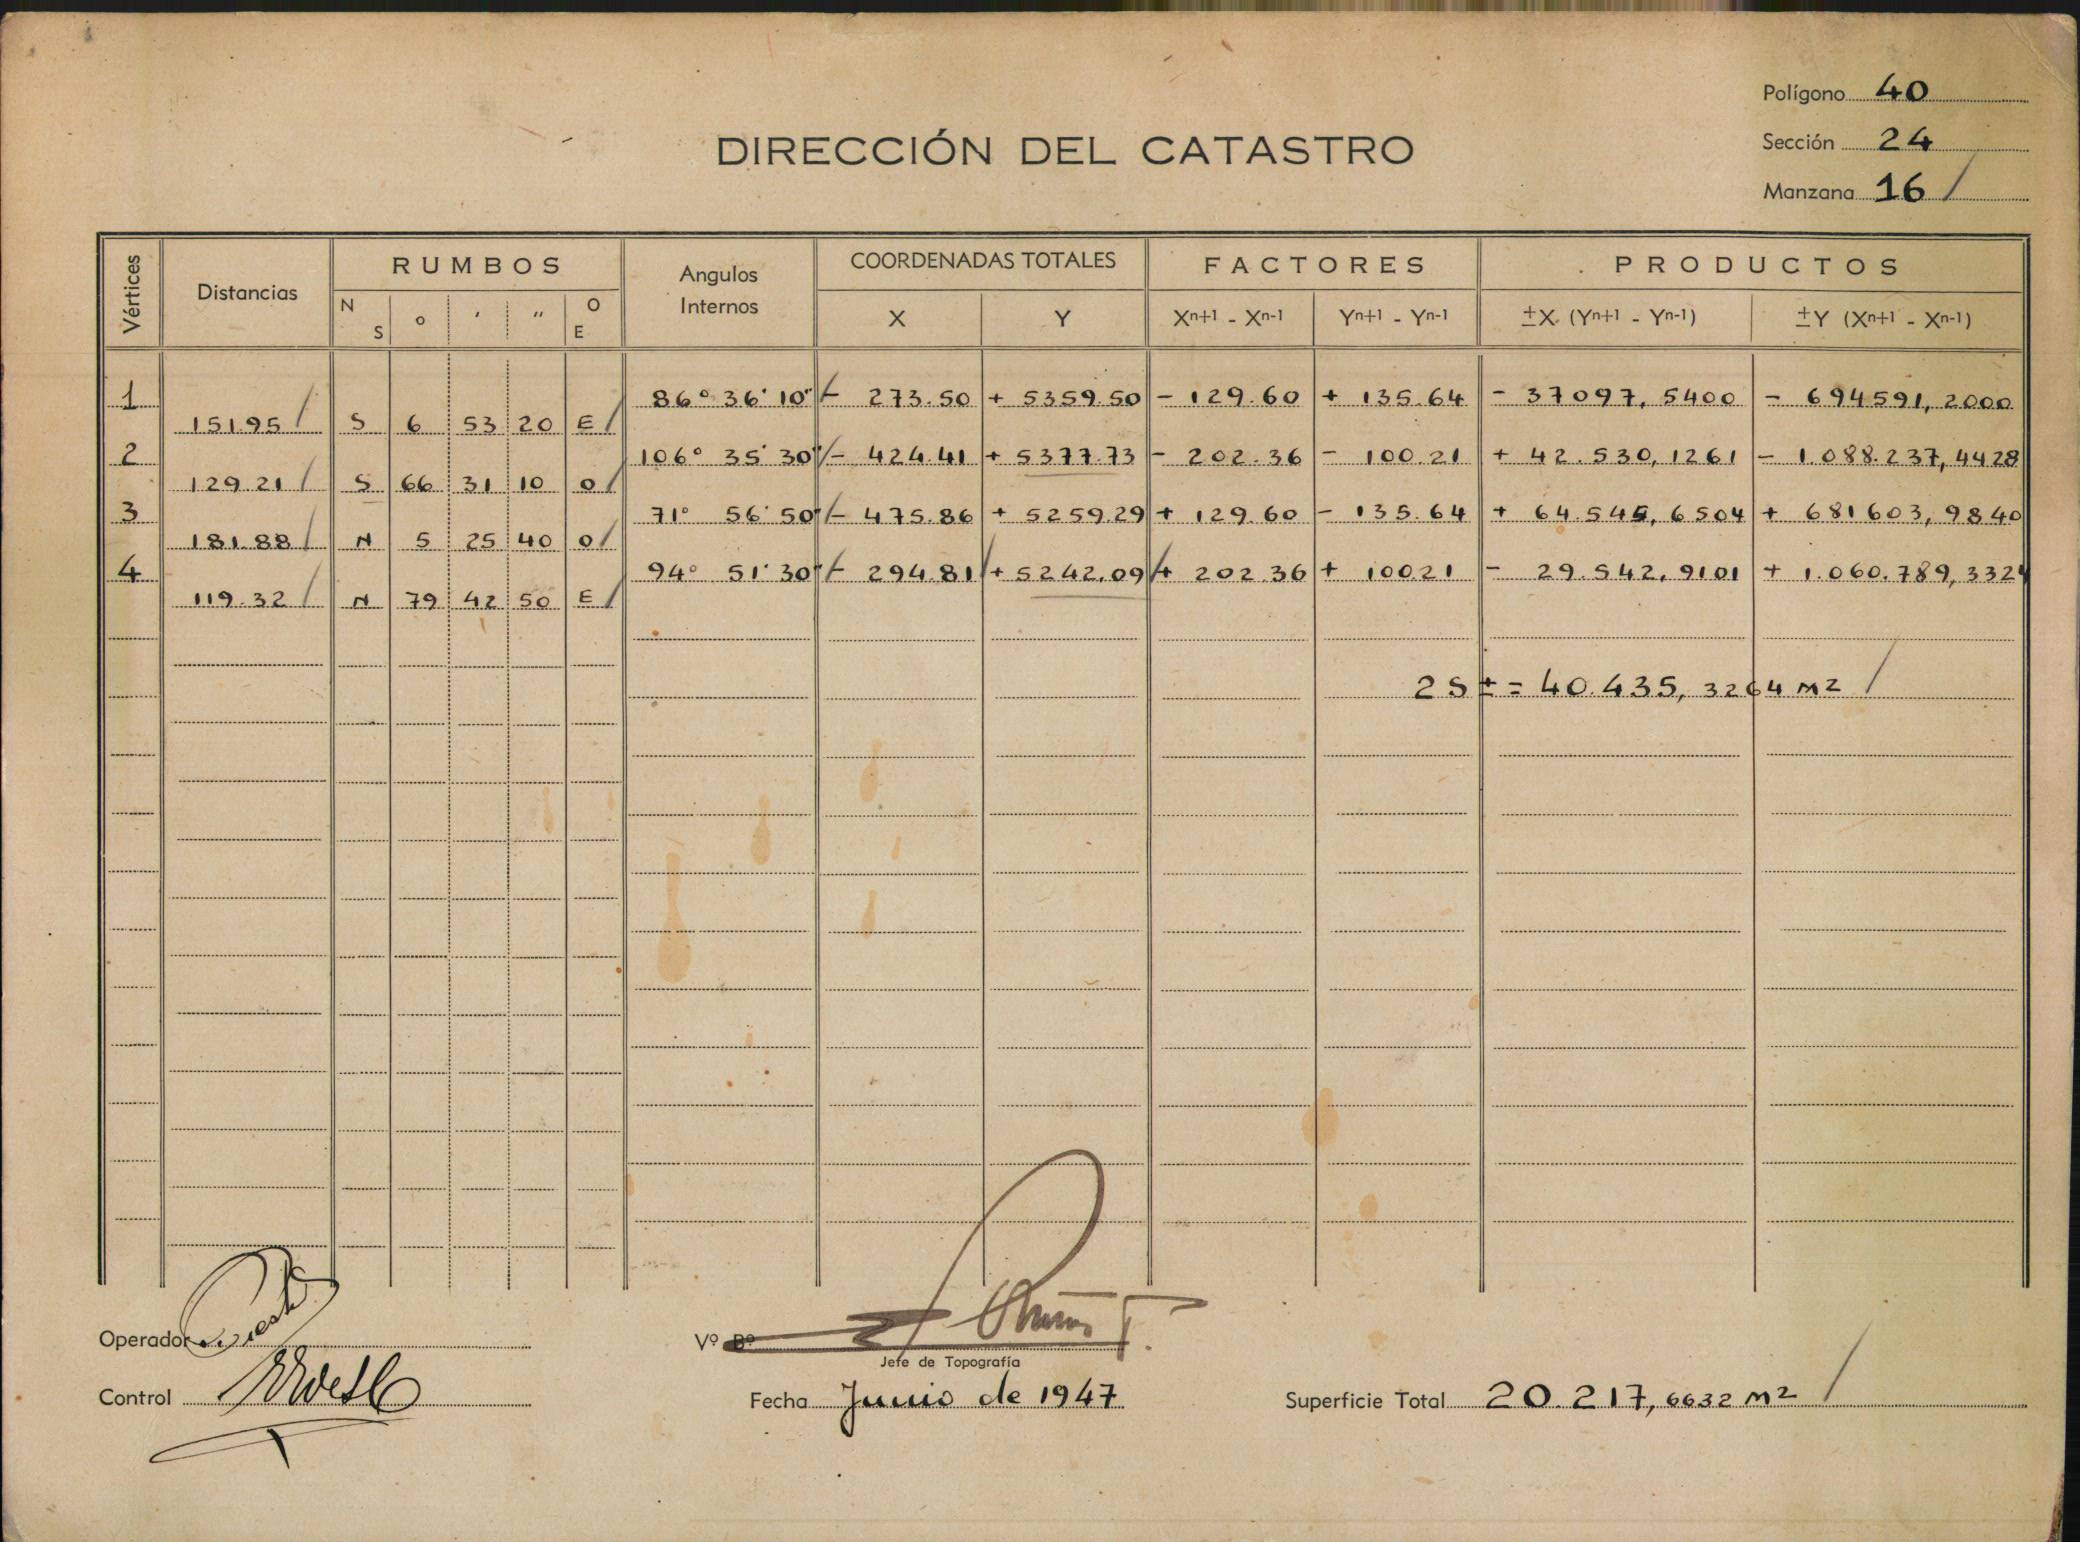 Polígono 40
DIRECCIÓN DEL CATASTRO
Sección 24
Manzana 16 /
Vértices Distancias RUMBOS Angulos Internos COORDENADAS TOTALES FACTORES PRODUCTOS
N S ° ' " O E X Y Xn+1 - Xn-1 Yn+1 - Yn-1 ±X (Yn+1 - Yn-1) ±Y (Xn+1 - Xn-1)
1 86° 36' 10" - 273.50 + 5359.50 - 129.60 + 135.64 - 37097,5400 - 694591,2000
151.95 / S 6 53 20 E /
2 106° 35' 30" - 424.41 + 5377.73 - 202.36 - 100.21 + 42.530,1261 - 1.088.237,4428
129.21 / S 66 31 10 O /
3 71° 56' 50" - 475.86 + 5259.29 + 129.60 - 135.64 + 64.545,6504 + 681603,9840
181.88 / N 5 25 40 O /
4 94° 51' 30" - 294.81 + 5242.09 + 202.36 + 100.21 - 29.542,9101 + 1.060.789,3324
119.32 / N 79 42 50 E /
2 S ± = 40.435,3264 M2 /
Operador
Vº Bº
Jefe de Topografía
Control
Fecha Junio de 1947
Superficie Total 20.217,6632 M2 /